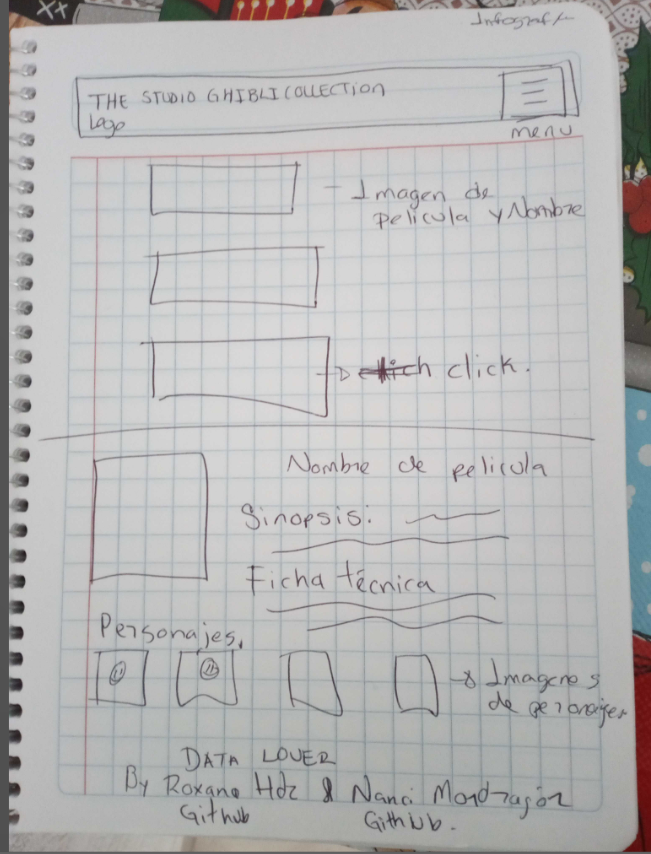 Infografi
THE STUDIO GHIBLI COLLECTION
Logo
menu
- Imagen de
pelicula y Nombre
click.
Nombre de pelicula
Sinopsis:
Ficha técnica
Personajes.
Imagenes
de personajes
DATA LOVER
By Roxana Hdz & Nanci Mondragón
Github
GitHub.